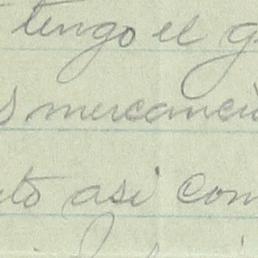 tengo el g
s mercancí
to asi com